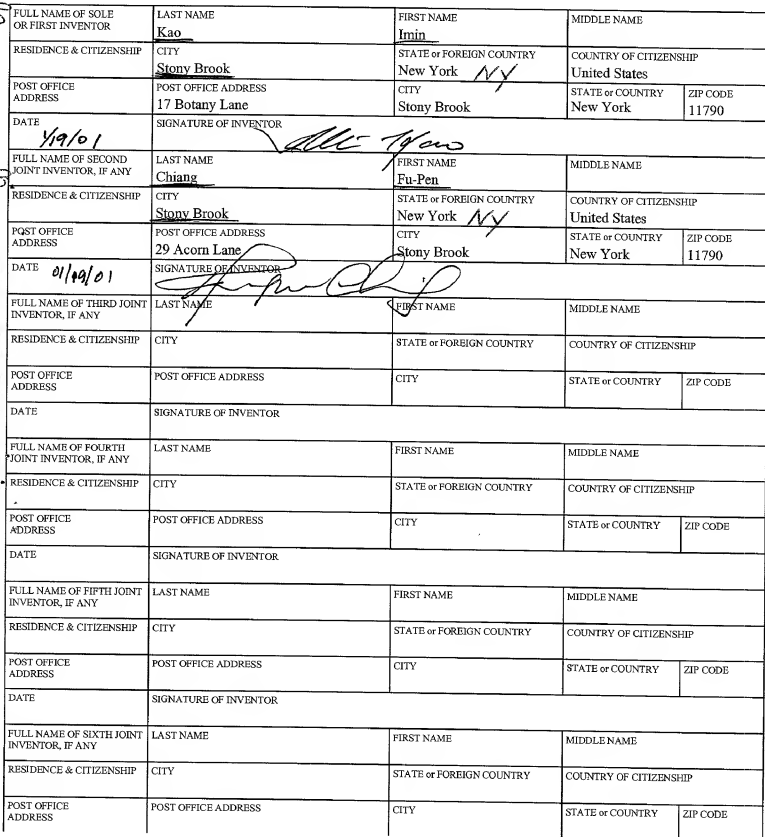 FULL NAME OF SOLE OR FIRST INVENTOR LAST NAME FIRST NAME MIDDLE NAME
Kao Imin
RESIDENCE & CITIZENSHIP CITY STATE or FOREIGN COUNTRY COUNTRY OF CITIZENSHIP
Stony Brook New York NY United States
POST OFFICE ADDRESS POST OFFICE ADDRESS CITY STATE or COUNTRY ZIP CODE
17 Botany Lane Stony Brook New York 11790
DATE SIGNATURE OF INVENTOR
1/19/01
FULL NAME OF SECOND JOINT INVENTOR, IF ANY LAST NAME FIRST NAME MIDDLE NAME
Chiang Fu-Pen
RESIDENCE & CITIZENSHIP CITY STATE or FOREIGN COUNTRY COUNTRY OF CITIZENSHIP
Stony Brook New York NY United States
POST OFFICE ADDRESS POST OFFICE ADDRESS CITY STATE or COUNTRY ZIP CODE
29 Acorn Lane Stony Brook New York 11790
DATE 01/19/01 SIGNATURE OF INVENTOR
FULL NAME OF THIRD JOINT INVENTOR, IF ANY LAST NAME FIRST NAME MIDDLE NAME
RESIDENCE & CITIZENSHIP CITY STATE or FOREIGN COUNTRY COUNTRY OF CITIZENSHIP
POST OFFICE ADDRESS POST OFFICE ADDRESS CITY STATE or COUNTRY ZIP CODE
DATE SIGNATURE OF INVENTOR
FULL NAME OF FOURTH JOINT INVENTOR, IF ANY LAST NAME FIRST NAME MIDDLE NAME
RESIDENCE & CITIZENSHIP CITY STATE or FOREIGN COUNTRY COUNTRY OF CITIZENSHIP
POST OFFICE ADDRESS POST OFFICE ADDRESS CITY STATE or COUNTRY ZIP CODE
DATE SIGNATURE OF INVENTOR
FULL NAME OF FIFTH JOINT INVENTOR, IF ANY LAST NAME FIRST NAME MIDDLE NAME
RESIDENCE & CITIZENSHIP CITY STATE or FOREIGN COUNTRY COUNTRY OF CITIZENSHIP
POST OFFICE ADDRESS POST OFFICE ADDRESS CITY STATE or COUNTRY ZIP CODE
DATE SIGNATURE OF INVENTOR
FULL NAME OF SIXTH JOINT INVENTOR, IF ANY LAST NAME FIRST NAME MIDDLE NAME
RESIDENCE & CITIZENSHIP CITY STATE or FOREIGN COUNTRY COUNTRY OF CITIZENSHIP
POST OFFICE ADDRESS POST OFFICE ADDRESS CITY STATE or COUNTRY ZIP CODE